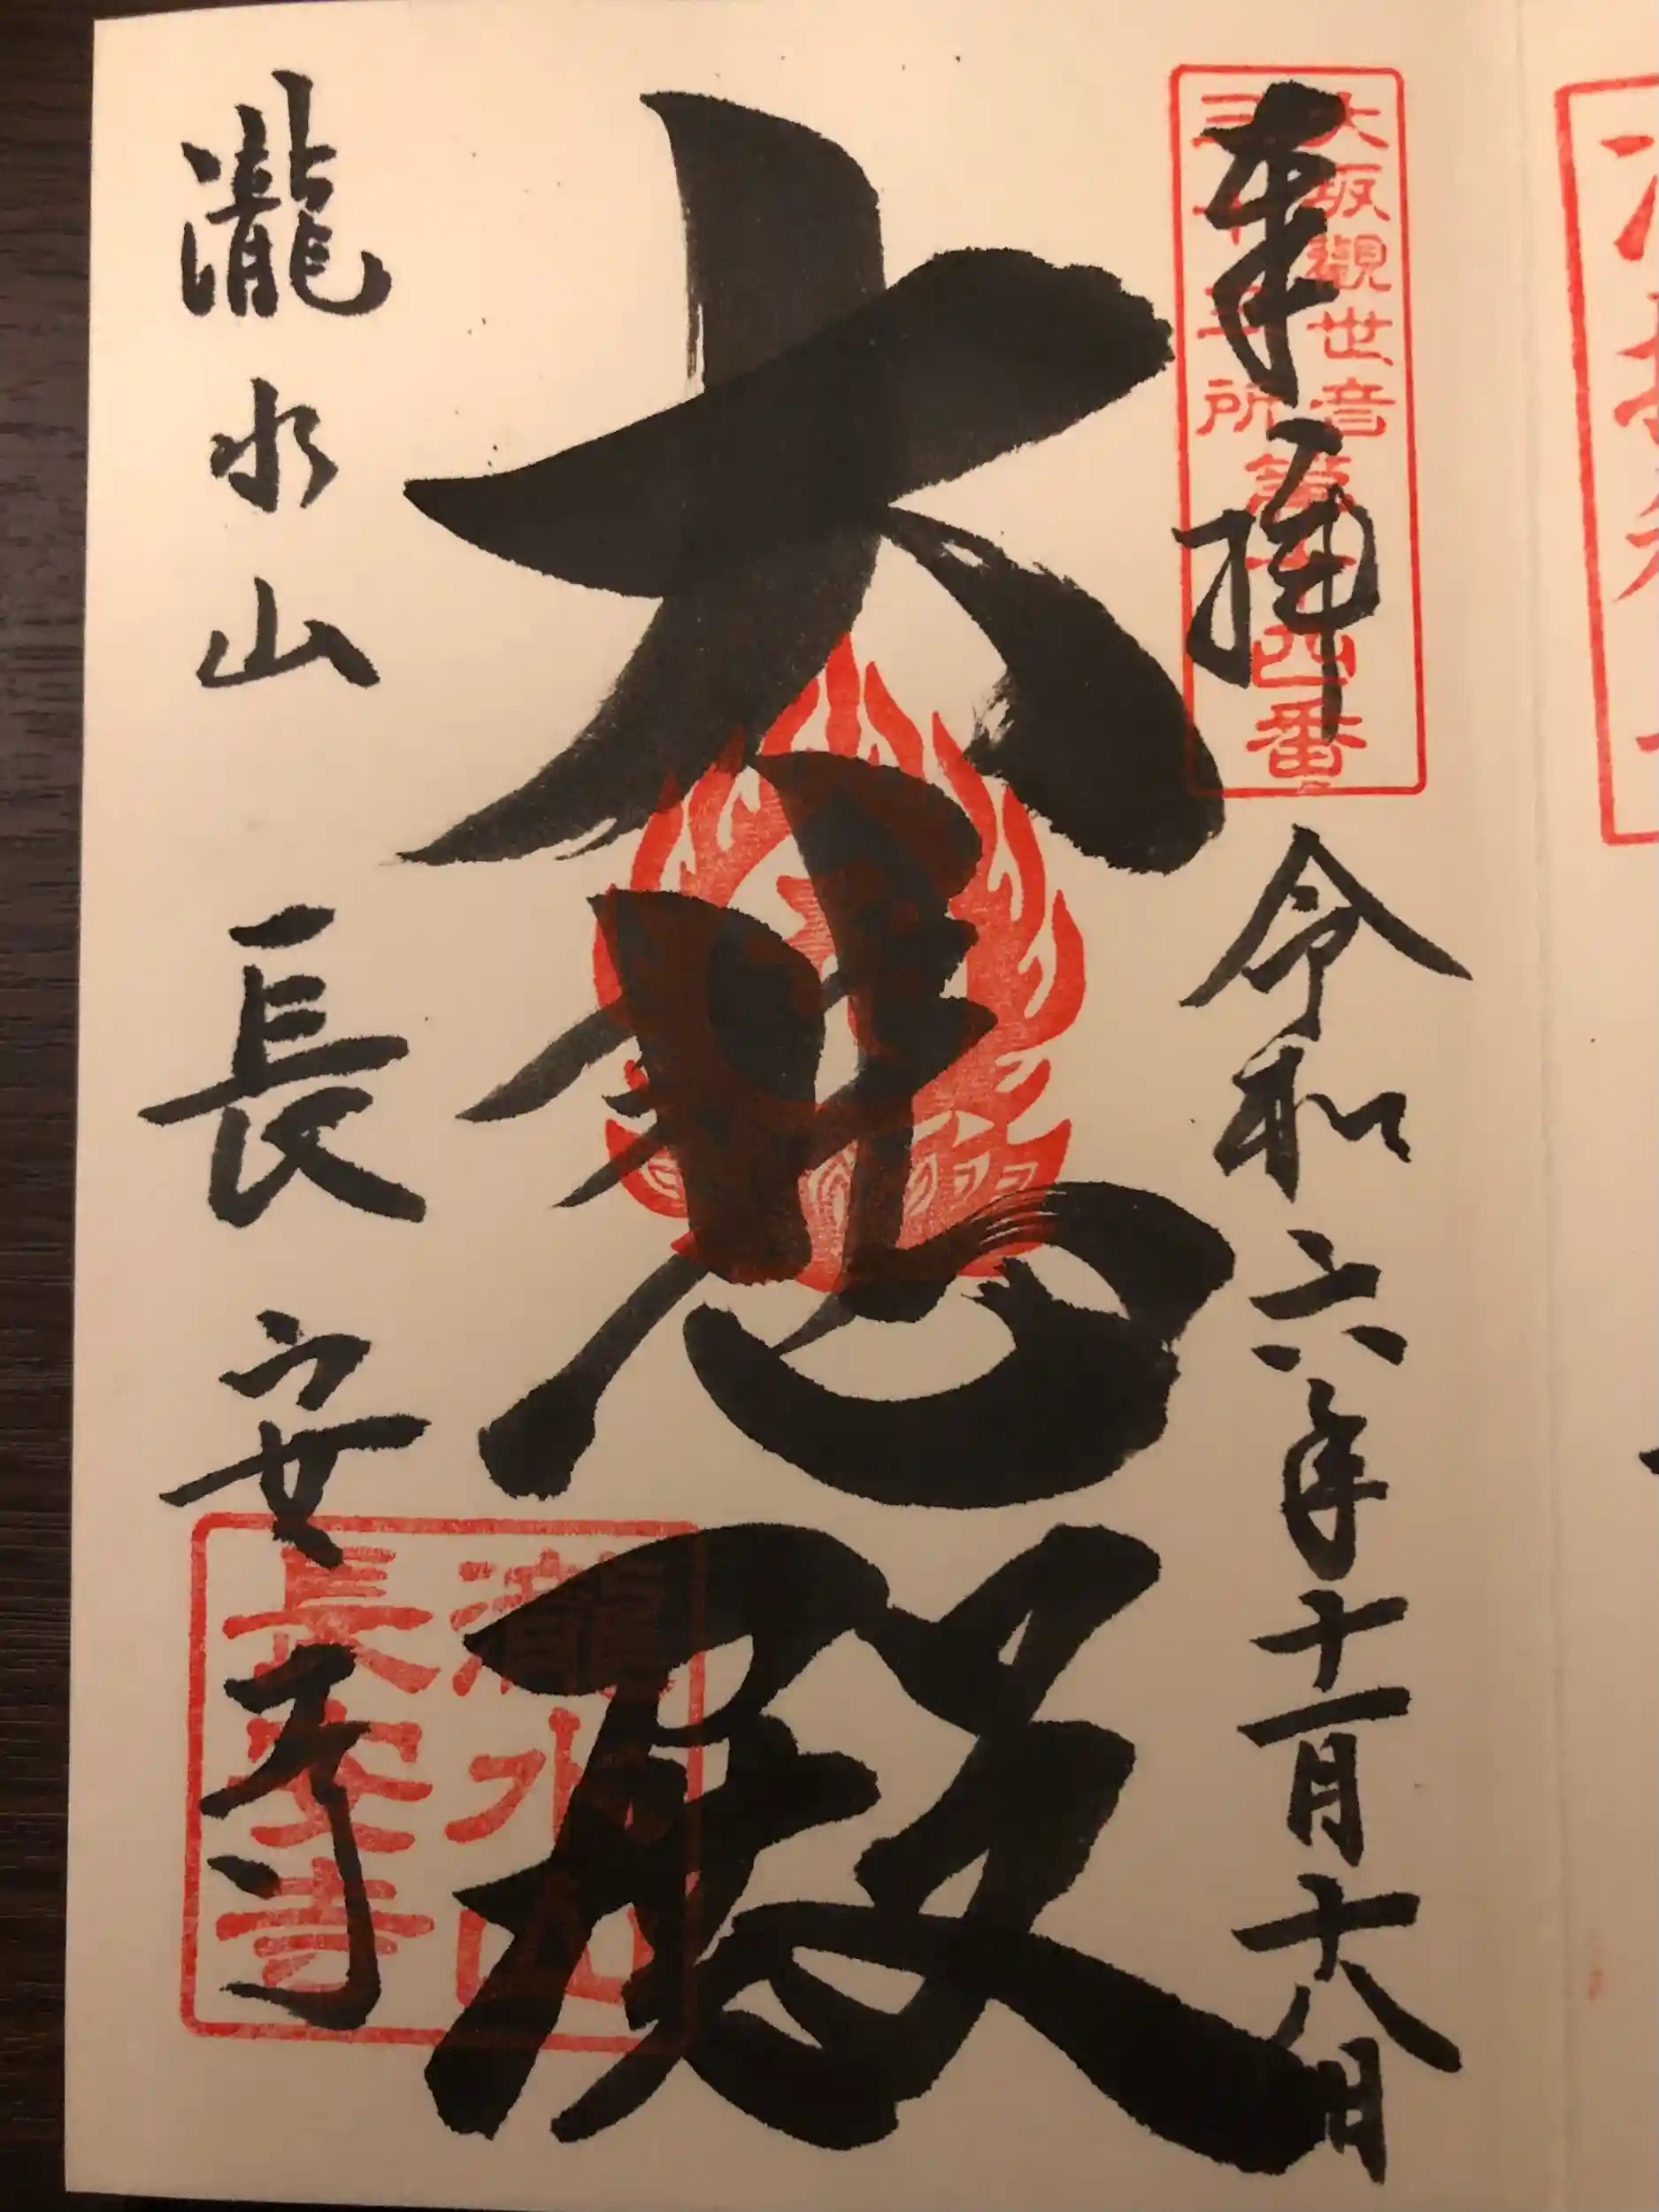 奉拝 令和六年十一月十八日
大坂觀世音
三十三所
第十四番
大悲殿
瀧水山 長安寺
瀧水山
長安寺